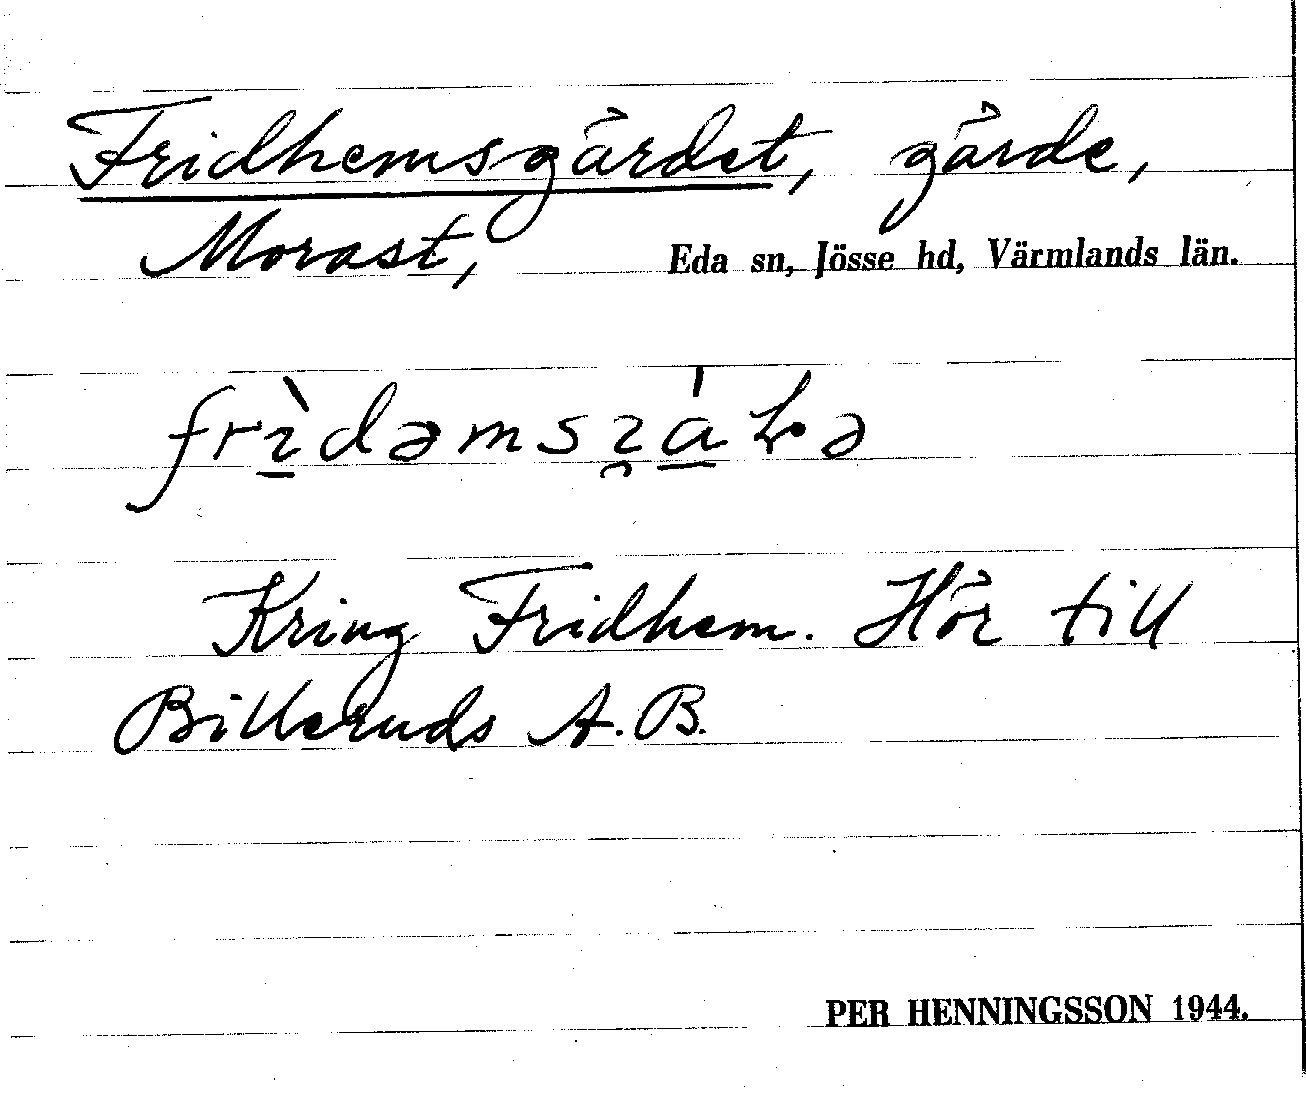 Fridhemsgärdet, gärde,
Morast, Eda sn, Jösse hd, Värmlands län.
Kring Fridhem. Hör till
Billeruds A.B.
PER HENNINGSSON 1944.